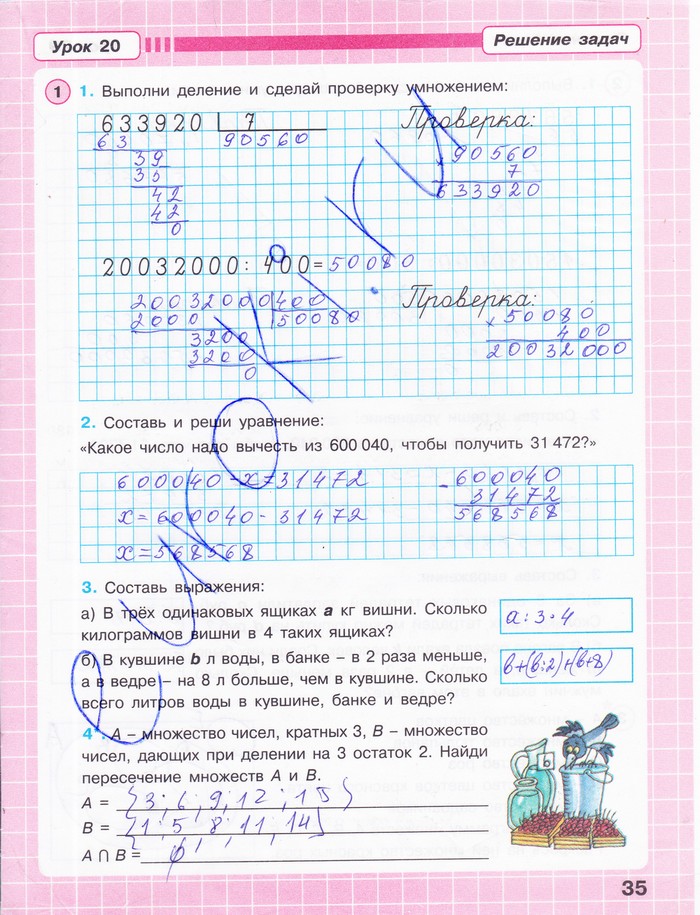 Урок 20
Решение задач
1 1. Выполни деление и сделай проверку умножением:
633920 | 7
63 90560
39
35
42
42
0
Проверка:
× 90560
7
633920
20032000 : 400 = 50080
20032000 | 400
2000 50080
3200
3200
0
Проверка:
× 50080
400
20032000
2. Составь и реши уравнение:
«Какое число надо вычесть из 600 040, чтобы получить 31 472?»
600040 - x = 31472
x = 600040 - 31472
x = 568568
- 600040
31472
568568
3. Составь выражения:
а) В трёх одинаковых ящиках a кг вишни. Сколько
килограммов вишни в 4 таких ящиках?
a : 3 · 4
б) В кувшине b л воды, в банке – в 2 раза меньше,
а в ведре – на 8 л больше, чем в кувшине. Сколько
всего литров воды в кувшине, банке и ведре?
b+(b:2)+(b+8)
4*. A – множество чисел, кратных 3, B – множество
чисел, дающих при делении на 3 остаток 2. Найди
пересечение множеств A и B.
A = {3; 6; 9; 12; 15}
B = {1; 5; 8; 11; 14}
A ∩ B = ∅
35